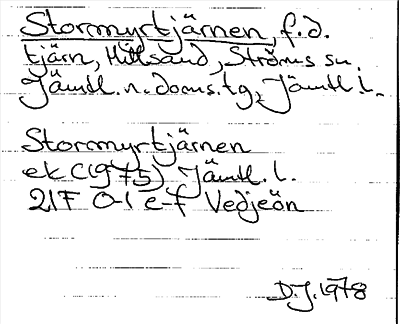 Stormyrtjärnen, f.d.
tjärn, Hillsand, Ströms sn.
Jämtl. n. doms. tg, Jämtl l.
Stormyrtjärnen
ek C(1975) Jämtl. l.
21F 0-1 e-f Vedjeön
D.J. 1978